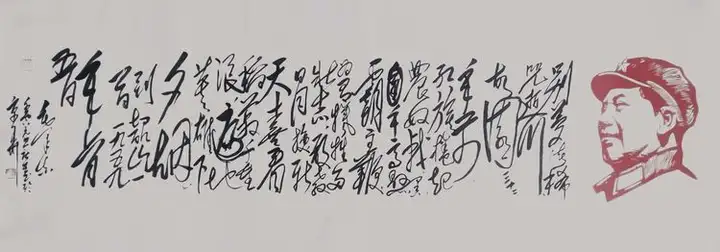 别梦依稀
咒逝川
故园三十二
年前
红旗卷起
农奴戟黑
手高悬
霸主鞭
为有牺牲多
壮志敢教
日月换新
天喜看
稻菽千重
浪遍地
英雄下
夕烟
到韶山
一九五九
毛泽东